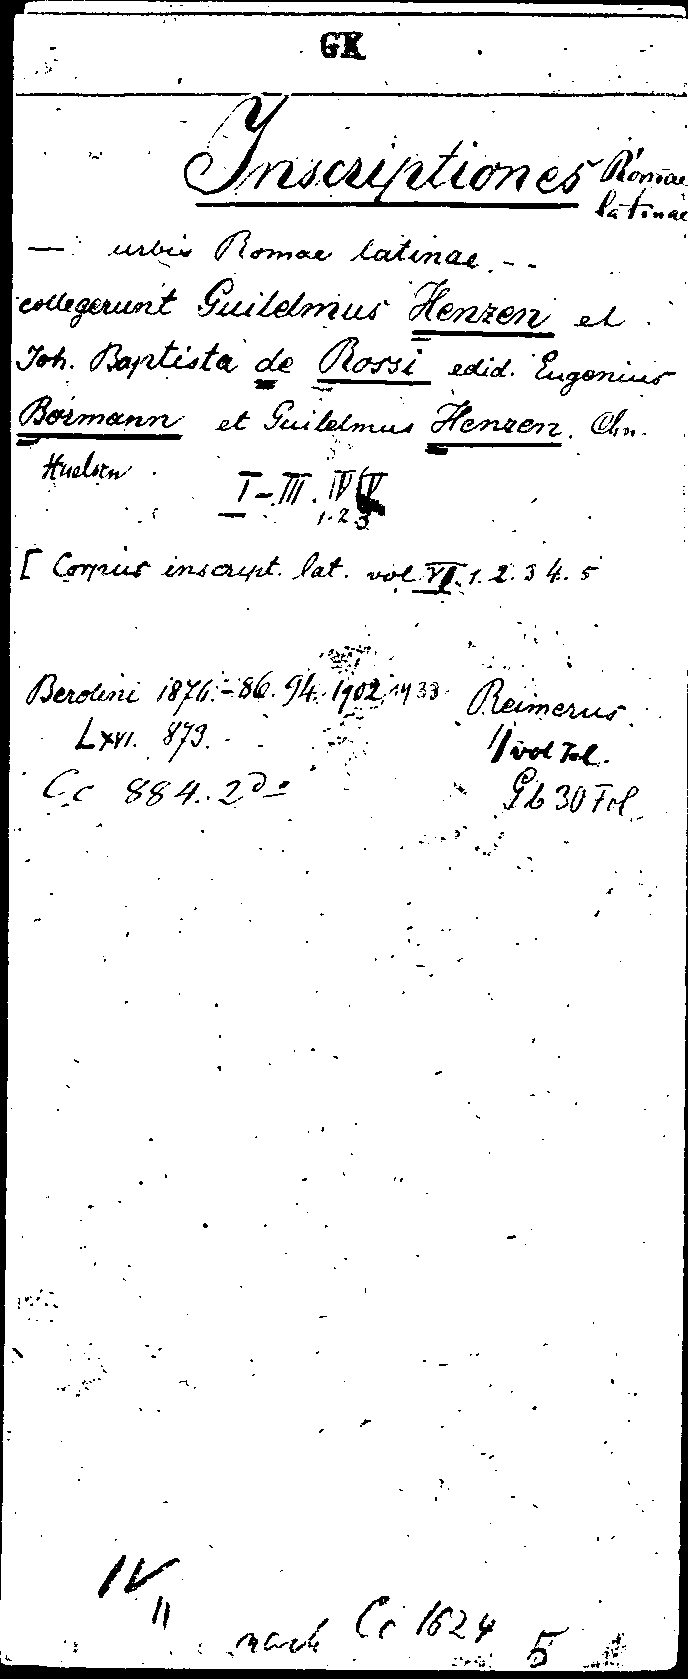 GK
Inscriptiones Romae
latinae
— urbis Romae latinae --
collegerunt Guilelmus Henzen et
Joh. Baptista de Rossi edid. Eugenius
Bormann et Guilelmus Henzen. Chr.
Huelsen
I-III. IV V
1.2 3
[ Corpus inscript. lat. vol VI. 1. 2. 3 4. 5
Berolini 1876.-86. 94. 1902. 1933. Reimerus.
Lxvi. 873. 11 vol Fol.
Cc 884. 2do Gb 30 Fol.
IV
11
nach Cc 1624 5